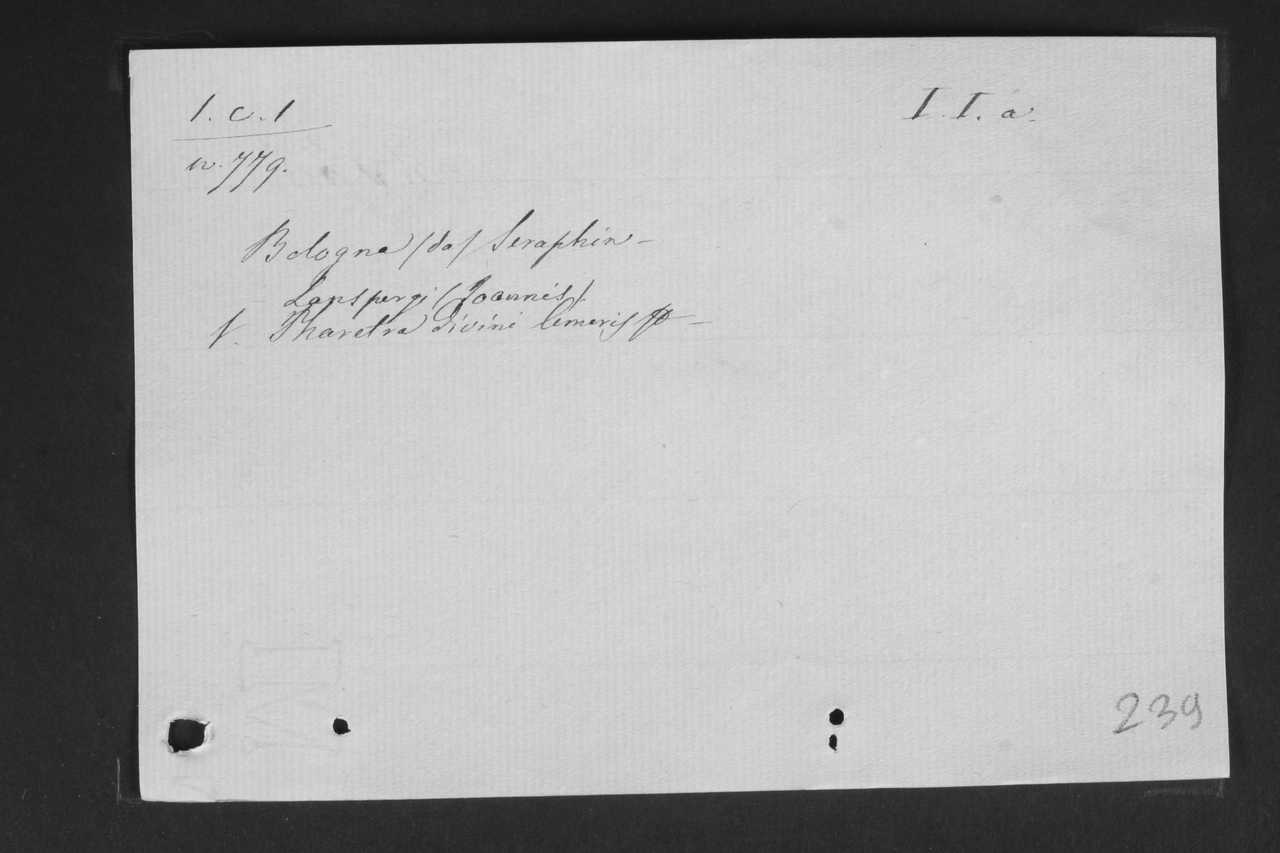 1. c. 1
I. I. a.
n. 779.
Bologna (da) Seraphin –
Lanspergi (Joannis)
V. Pharetra divini
239